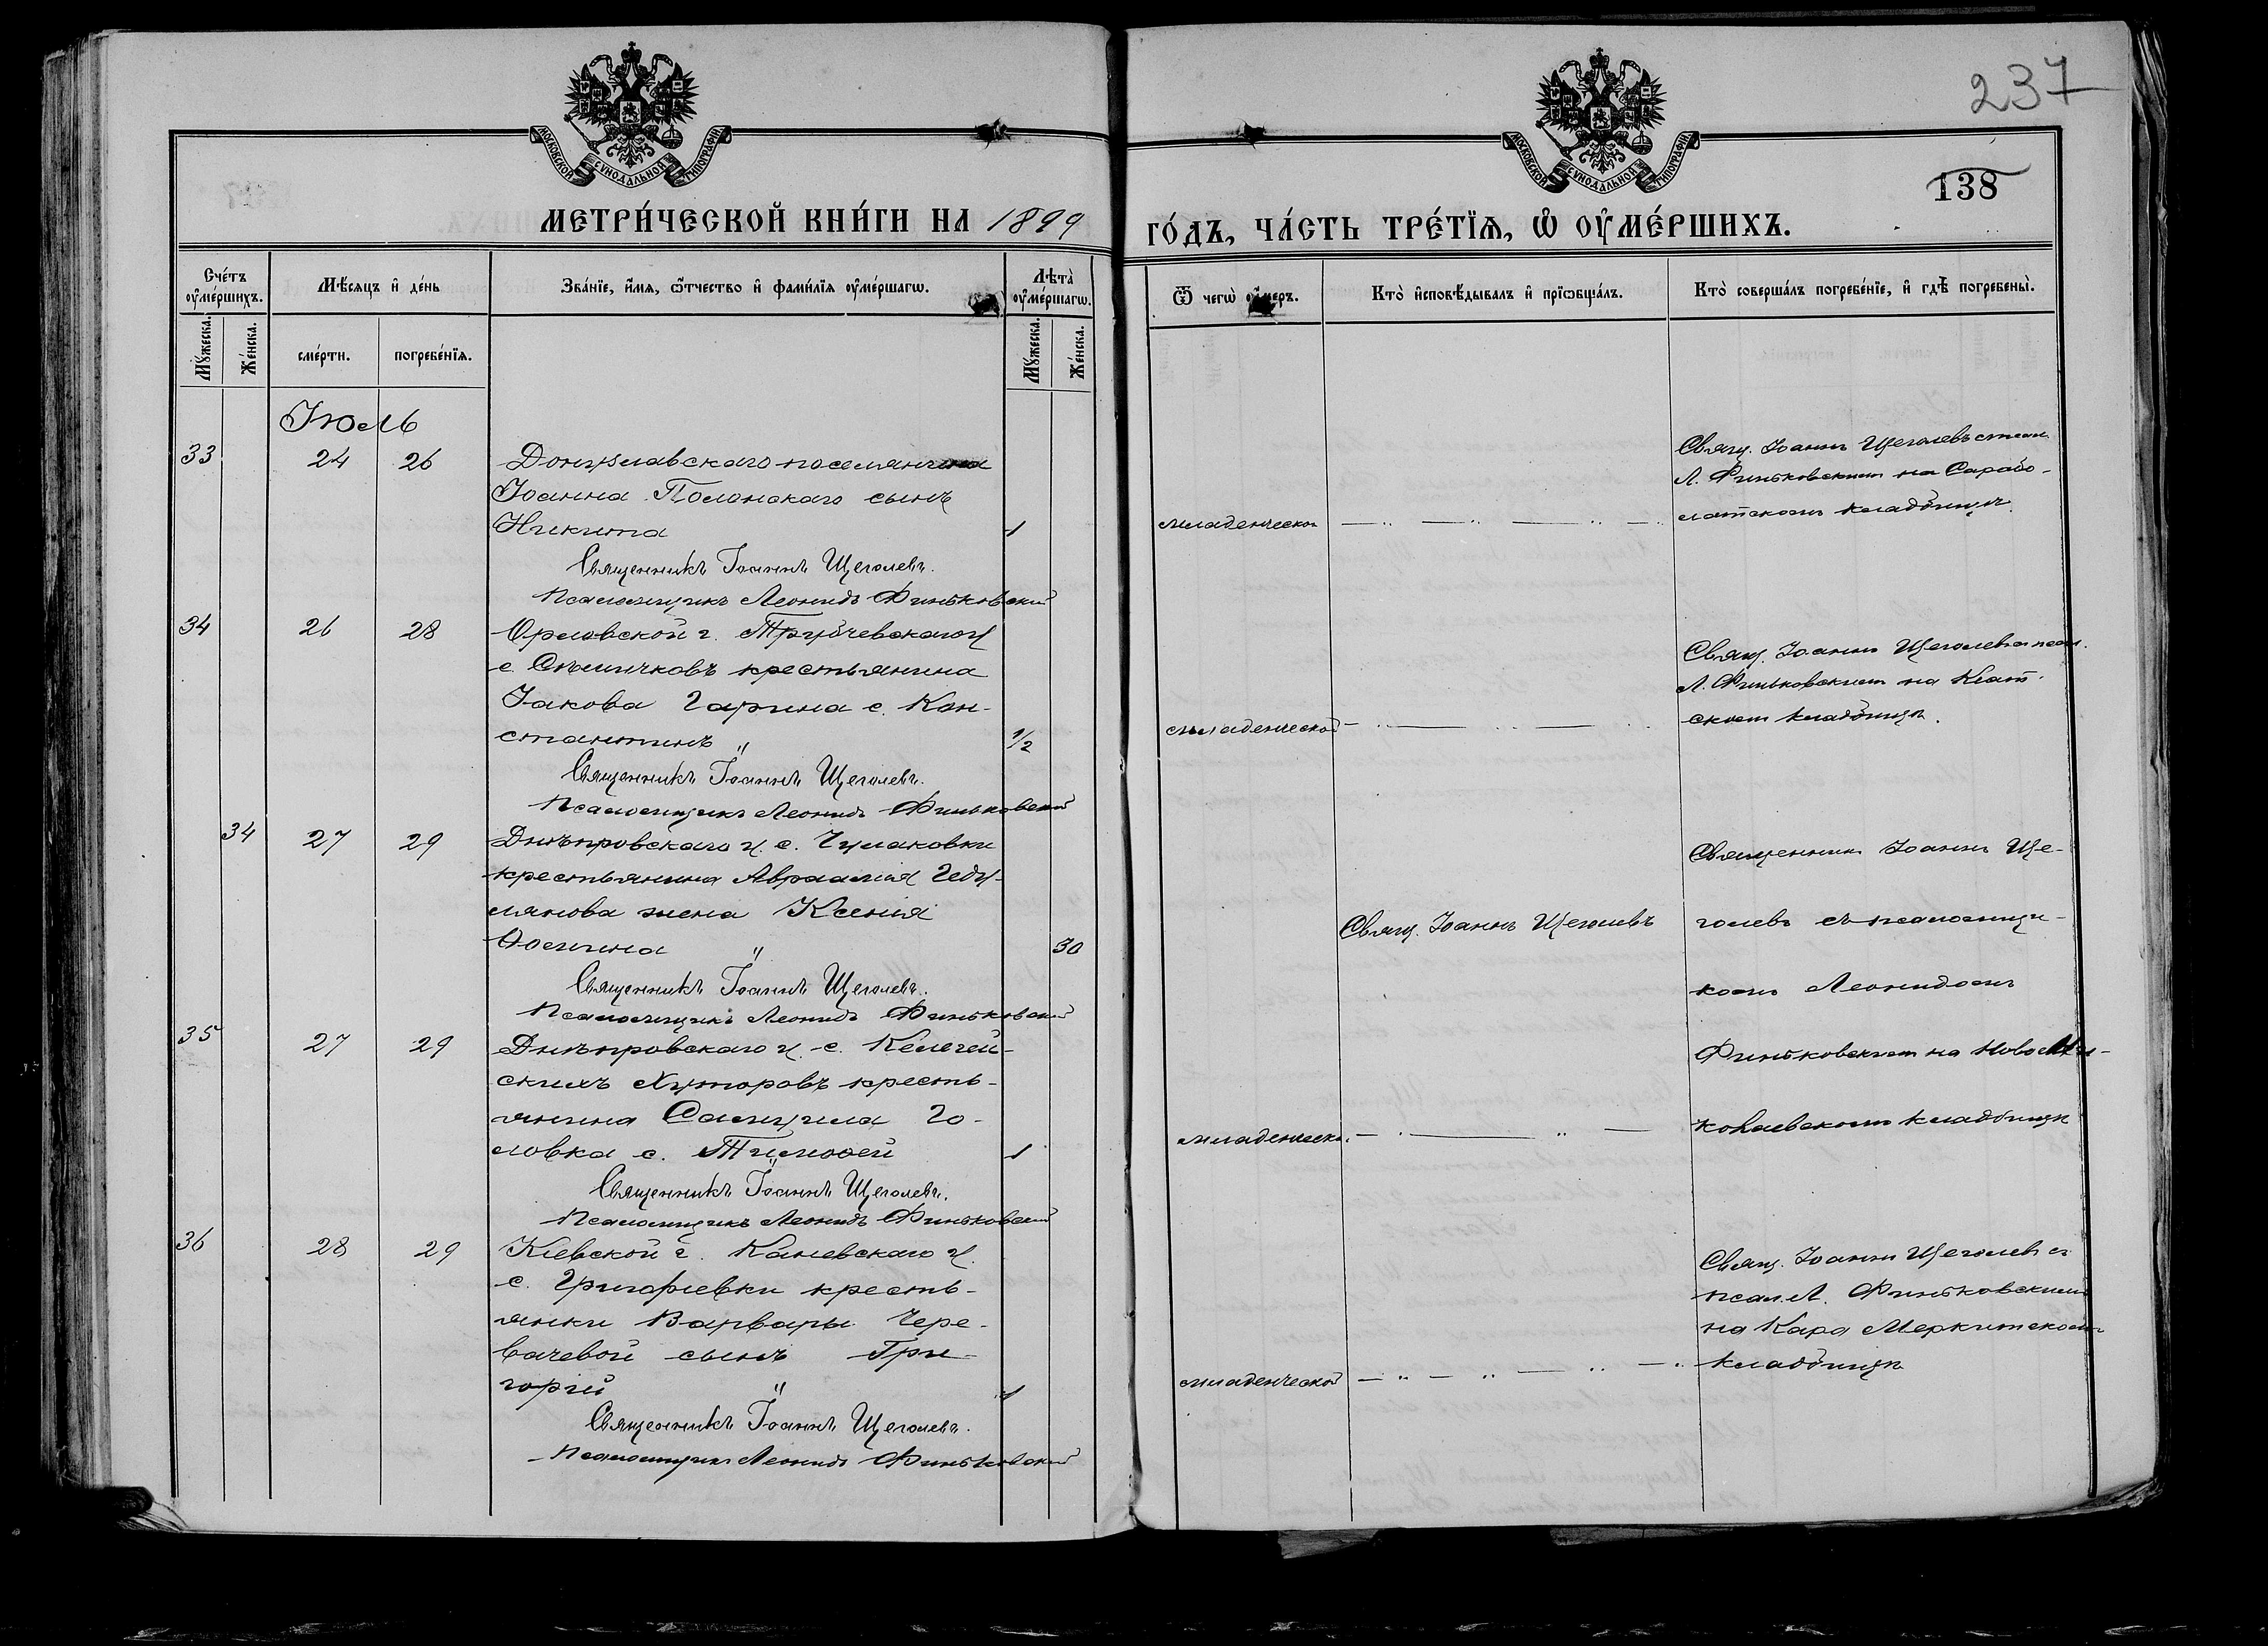 237
138
МОСКОВСКОЙ СѴНОДАЛЬНОЙ ТИПОГРАФІИ
МОСКОВСКОЙ СѴНОДАЛЬНОЙ ТИПОГРАФІИ
МЕТРИ́ЧЕСКОЙ КНИ́ГИ НА 1899
ГО́ДЪ, ЧА́СТЬ ТРЕ́ТЇѦ, Ѽ ОУ҆МЕ́РШИХЪ.
Сче́тъ оу҆ме́ршихъ.
Мѣ́сяцъ и҆ де́нь
Зва́нїе, и҆́мя, ѻ҆́тчество и҆ фами́лїя оу҆ме́ршагѡ.
Лѣта̀ оу҆ме́ршагѡ.
Ѿ чегѡ̀ оу҆́меръ.
Кто̀ и҆сповѣ́дывалъ и҆ прїѡбща́лъ.
Кто̀ соверша́лъ погребе́нїе, и҆ гдѣ̀ погребены̀.
Му́жеска.
Же́нска.
сме́рти.
погребе́нїя.
Му́жеска.
Же́нска.
Іюль
33 24 26 Донузлавскаго поселянина
Іоанна Полонскаго сынъ
Никита 1
Священникъ Іоаннъ Щеголевъ.
Псаломщикъ Леонидъ Финьковскій
младенческой
Свящ. Іоаннъ Щеголевъ
Л. Финьковскимъ на Сарабо-
латскомъ кладбищѣ.
34 26 28 Орловской г. Трубчевскаго у
с. Сѣмячковъ крестьянина
Іакова Гарина с. Кон-
стантинъ " 1/2
Священникъ Іоаннъ Щеголевъ.
Псаломщикъ Леонидъ Финьковскій
младенческой
Свящ. Іоаннъ Щеголевъ
Л. Финьковскимъ на Кіат-
скомъ кладбищѣ.
34 27 29 Днѣпровскаго у. с. Чулаковки
крестьянина Авраамія Геду-
лянова жена Ксенія
30
Священникъ Іоаннъ Щеголевъ.
Псаломщикъ Леонидъ Финьковскій
Свящ. Іоаннъ Щеголевъ
Священникъ Іоаннъ Ще-
голевъ съ псаломщи-
комъ Леонидомъ
Финьковскимъ на Ново
кладбищѣ
35 27 29 Днѣпровскаго у. с. Келегей-
скихъ Хуторовъ кресть-
янина Самуила Го-
ловка с. Тимоѳей 1
Священникъ Іоаннъ Щеголевъ.
Псаломщикъ Леонидъ Финьковскій
младенческой
36 28 29 Кіевской г. Каневскаго у.
с. Григорьевки кресть-
янки Варвары Чере-
вачевой сынъ Гри-
горій " 1
Священникъ Іоаннъ Щеголевъ.
Псаломщикъ Леонидъ Финьковскій
младенческой
Свящ. Іоаннъ Щеголевъ съ
псал. Л. Финьковскимъ
на Кара Меркитскомъ
кладбищѣ